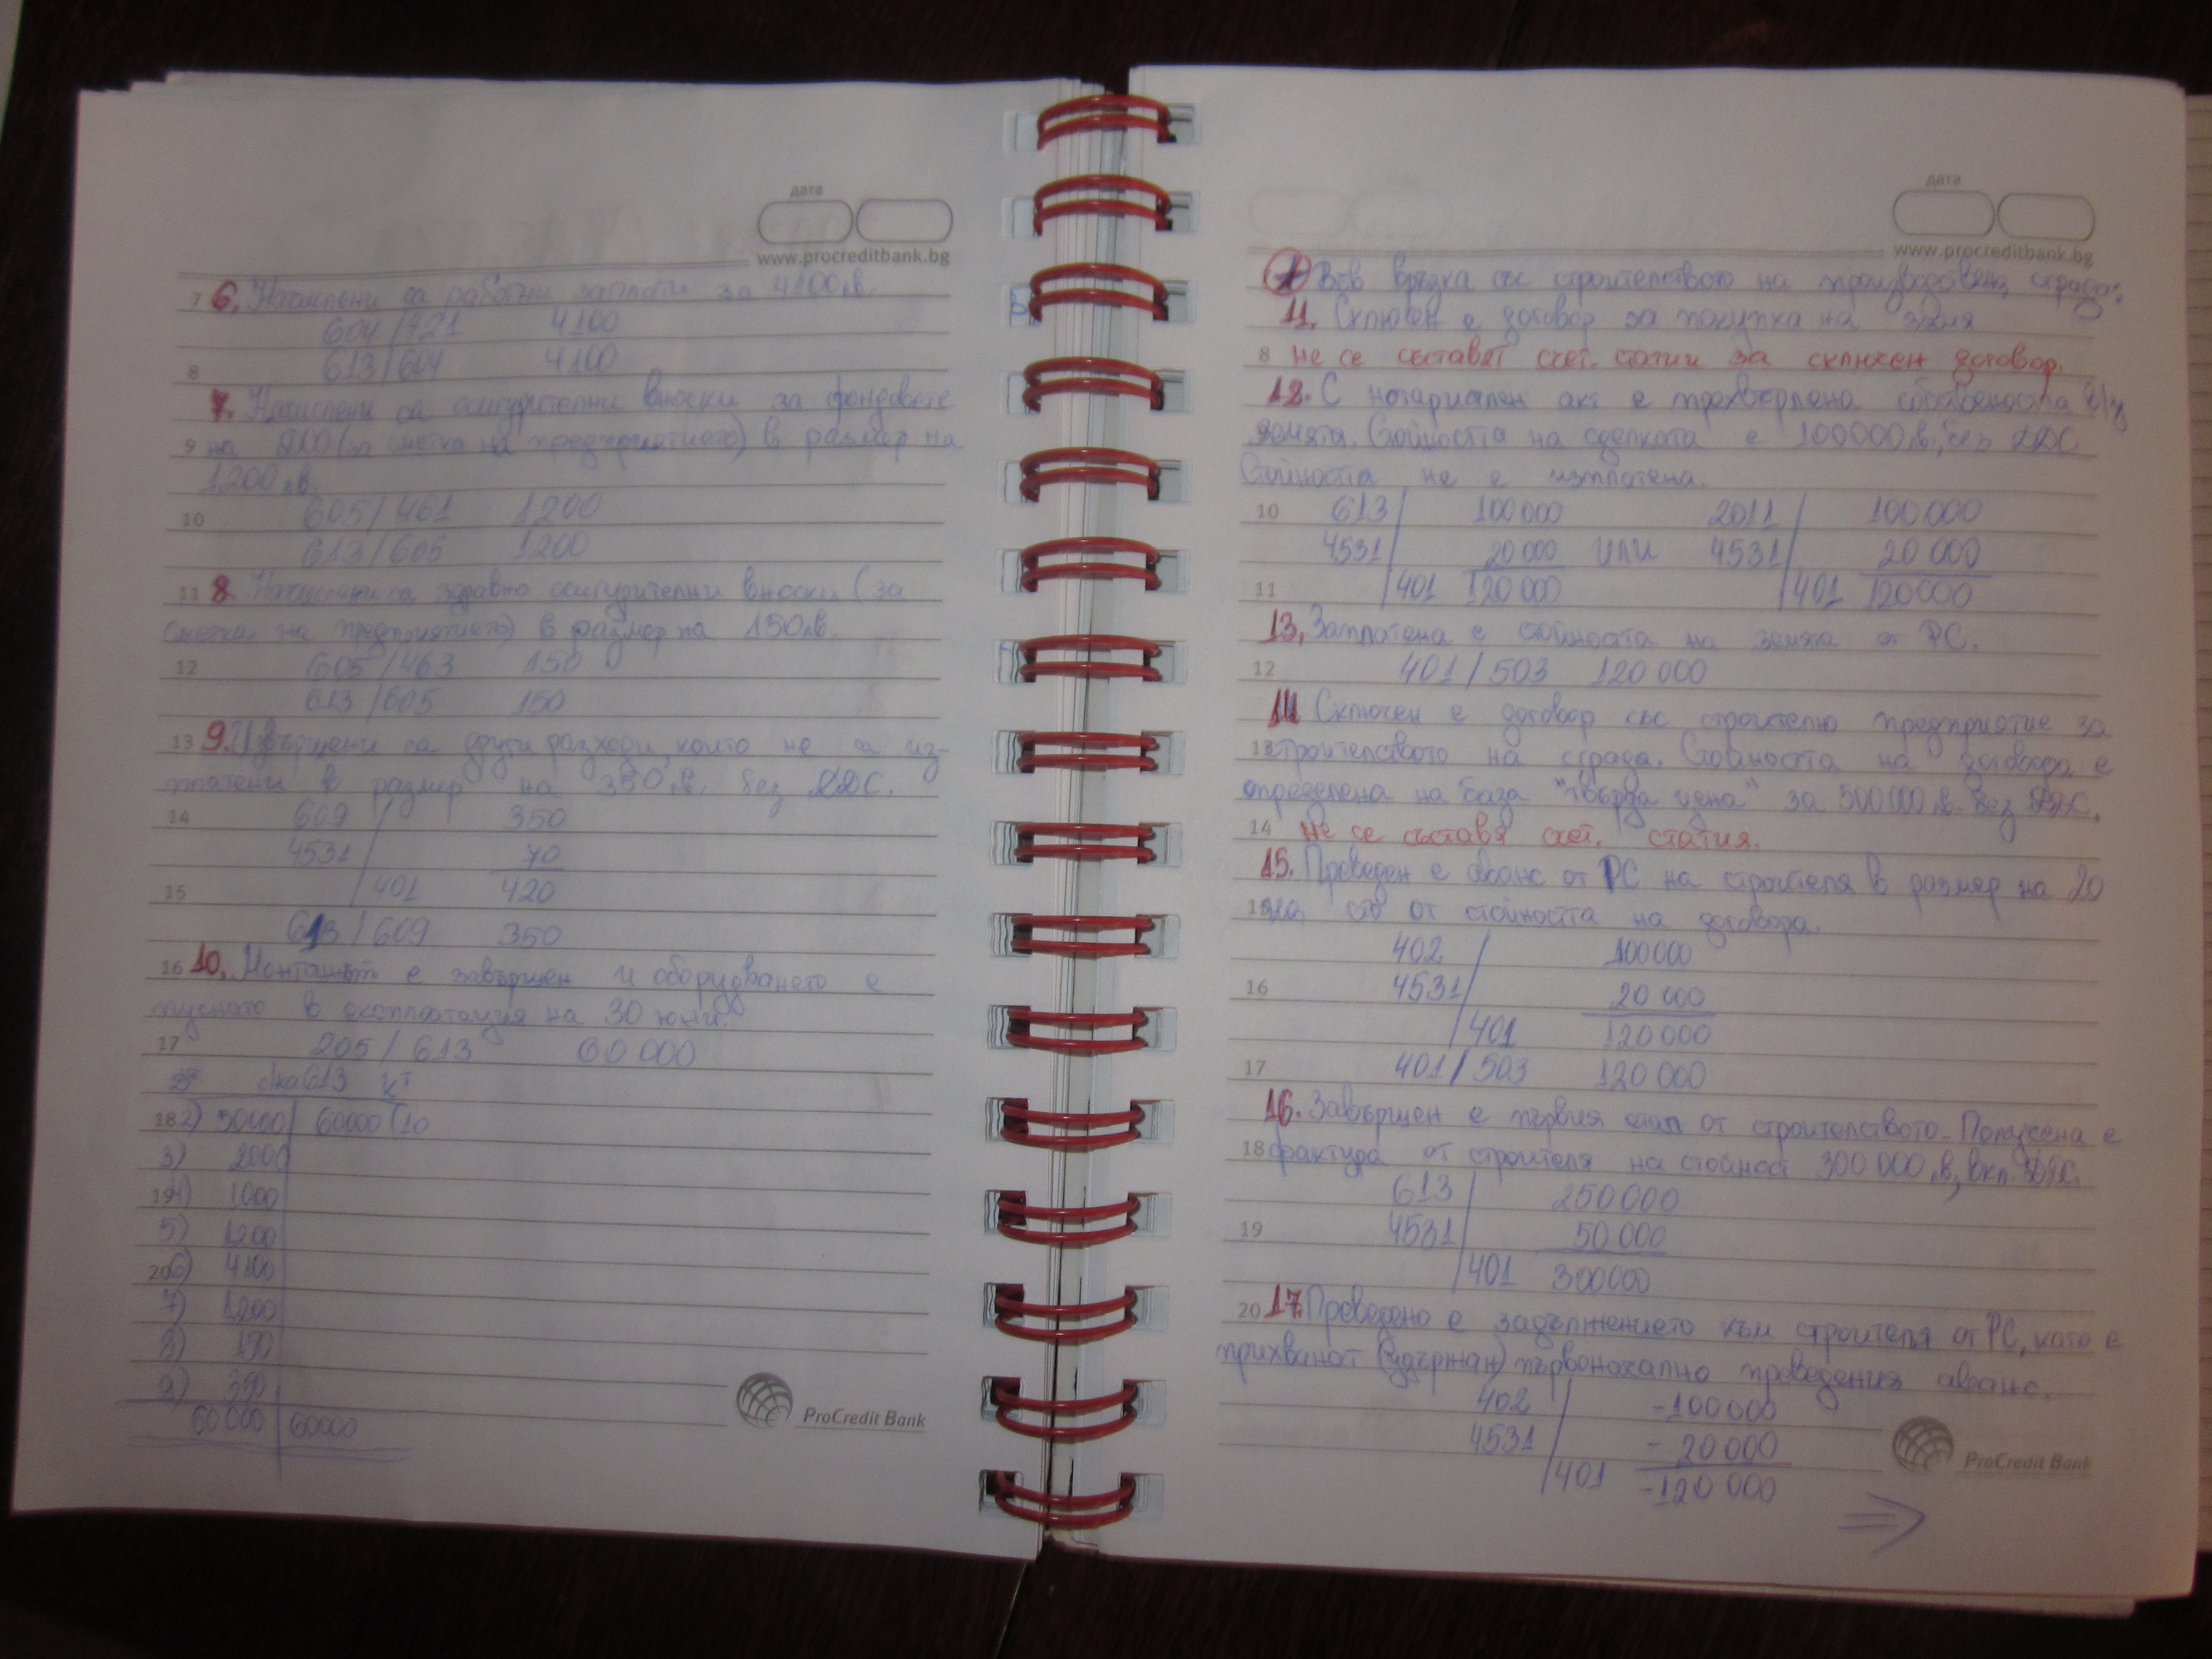 дата
www.procreditbank.bg
7 6. Начислени са работни заплати за 4100лв.
604/421 4100
8 613/604 4100
7. Начислени са осигурителни вноски за фондовете
9 на ДОО (за сметка на предприятието) в размер на
1200лв
10 605/461 1200
613/605 1200
11 8. Начислени са здравно осигурителни вноски (за
сметка на предприятието) в размер на 150лв.
12 605/463 150
613/605 150
13 9. Извършени са други разходи които не са из-
платени в размер на 350лв. без ДДС.
14 609/ 350
4531/ 70
15 /401 420
613/609 350
16 10. Монтажът е завършен и оборудването е
в експлоатация на 30 юни
17 205/613 60 000
613
18 2) 50000 60000 (10
3) 2000
19 4) 1000
5) 1200
20 6) 4100
7) 1200
8) 150
9) 350
60 000 60000
ProCredit Bank
дата
www.procreditbank.bg
във връзка със строителството на производствена сграда:
11. Сключен е договор за покупка на земя
8 не се съставят счет. статии за сключен договор.
12. С нотариален акт е прехвърлена собствеността в/у
земята. Стойността на сделката е 100000лв. без ДДС.
Стойността не е изплатена.
10 613/ 100000 2011/ 100 000
4531/ 20000 или 4531/ 20 000
11 /401 120000 /401 120000
13. Заплатена е стойността на земята от РС.
12 401/503 120 000
14. Сключен е договор със строително предприятие за
13 строителството на сграда. Стойността на договора е
определена на база "твърда цена" за 500000 лв. без ДДС.
14 не се съставя счет. статия.
15. Преведен е аванс от РС на строителя в размер на 20
15 от стойността на договора.
402/ 100000
16 4531/ 20 000
/401 120 000
17 401/503 120 000
16. Завършен е първия етап от строителството. Получена е
18 фактура от строителя на стойност 300 000лв, вкл. ДДС.
613/ 250000
19 4531/ 50 000
/401 300000
20 17. Преведено е задължението към строителя от РС, като е
прихванат първоначално преведения аванс.
402/ -100000
4531/ -20000
/401 -120 000
ProCredit Bank